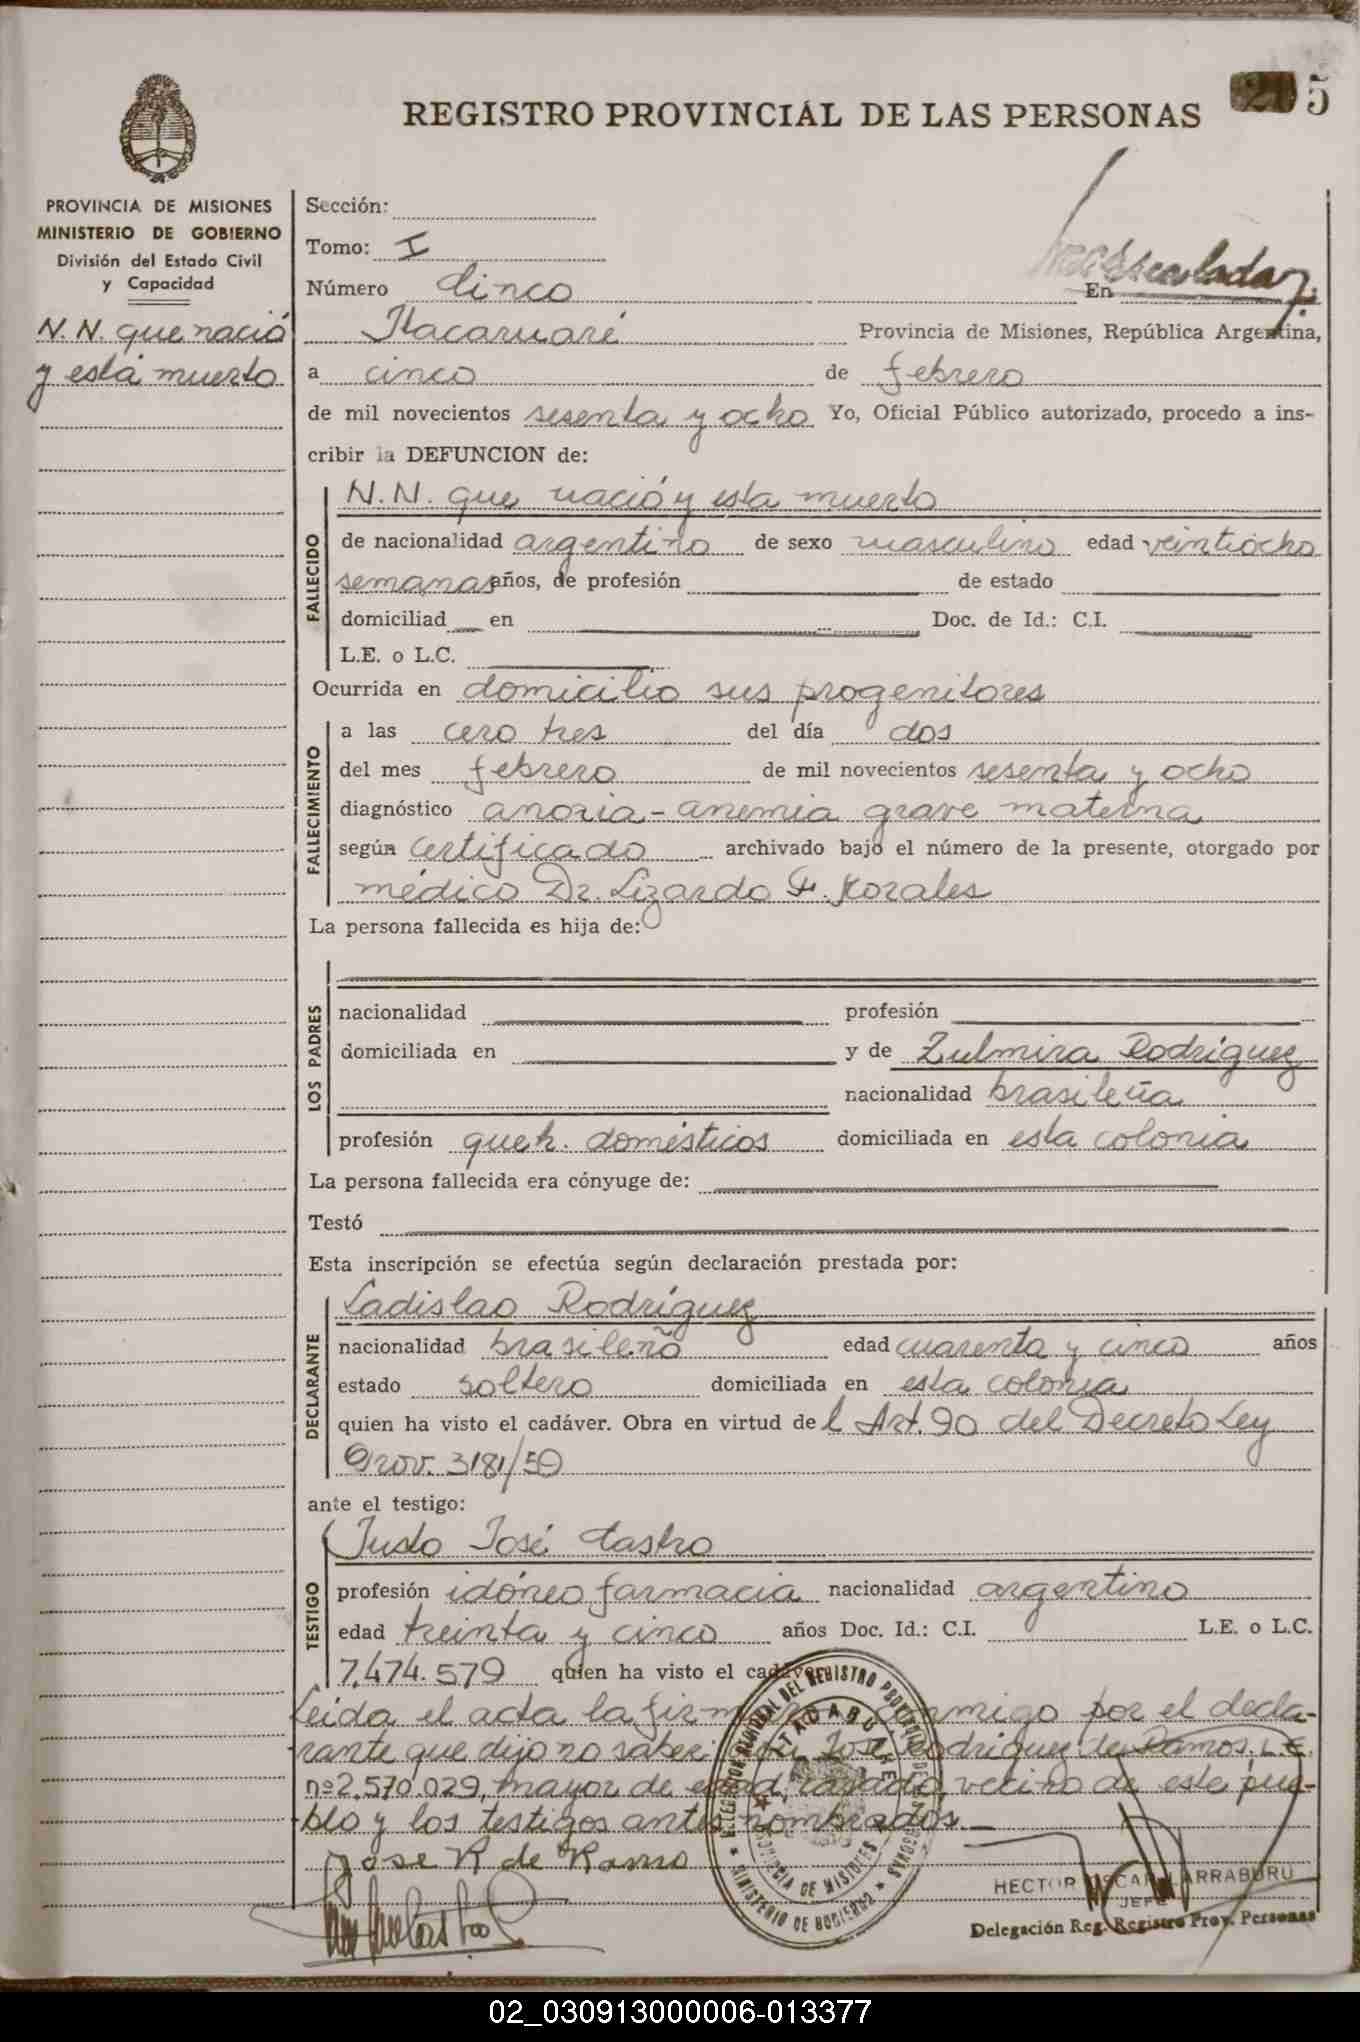 5
REGISTRO PROVINCIAL DE LAS PERSONAS
PROVINCIA DE MISIONES
MINISTERIO DE GOBIERNO
División del Estado Civil
y Capacidad
N. N. que nació
y está muerto
Sección:
Tomo: I
Número Cinco En
Itacaruaré Provincia de Misiones, República Argentina,
a cinco de febrero
de mil novecientos sesenta y ocho Yo, Oficial Público autorizado, procedo a ins-
cribir la DEFUNCION de:
FALLECIDO
N. N. que nació y esta muerto
de nacionalidad argentino de sexo masculino edad veintiocho
semanas años, de profesión de estado
domiciliad en Doc. de Id.: C.I.
L.E. o L.C.
Ocurrida en domicilio sus progenitores
FALLECIMIENTO
a las cero tres del día dos
del mes febrero de mil novecientos sesenta y ocho
diagnóstico anoxia - anemia grave materna
según certificado archivado bajo el número de la presente, otorgado por
médico Dr. Lizardo F. Morales
La persona fallecida es hija de:
LOS PADRES
nacionalidad profesión
domiciliada en y de Zulmira Rodríguez
nacionalidad brasileña
profesión queh. domésticos domiciliada en esta colonia
La persona fallecida era cónyuge de:
Testó
Esta inscripción se efectúa según declaración prestada por:
DECLARANTE
Ladislao Rodríguez
nacionalidad brasileño edad cuarenta y cinco años
estado soltero domiciliada en esta colonia
quien ha visto el cadáver. Obra en virtud de l Art. 90 del Decreto Ley
Prov. 3181/50
ante el testigo:
TESTIGO
Justo José Castro
profesión idóneo farmacia nacionalidad argentino
edad treinta y cinco años Doc. Id.: C.I. L.E. o L.C.
7.474.579 quien ha visto el cadáver.
Leida el acta la firman conmigo por el decla-
rante que dijo no saber José Rodríguez de Ramos, L.E.
nº 2.570.029, mayor de edad casado, vecino de este pue-
blo y los testigos antes nombrados.
José R de Ramo
HECTOR OSCAR LARRABURU
JEFE
Delegación Reg. Registro Prov. Personas
MINISTERIO DE GOBIERNO
PROVINCIA DE MISIONES
02_030913000006-013377